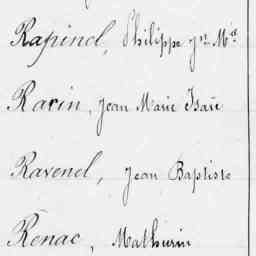 Rapinel, Philippe Jn Mie
Ravin, Jean Marie Isaïe
Ravenel, Jean Baptiste
Renac, Mathurin